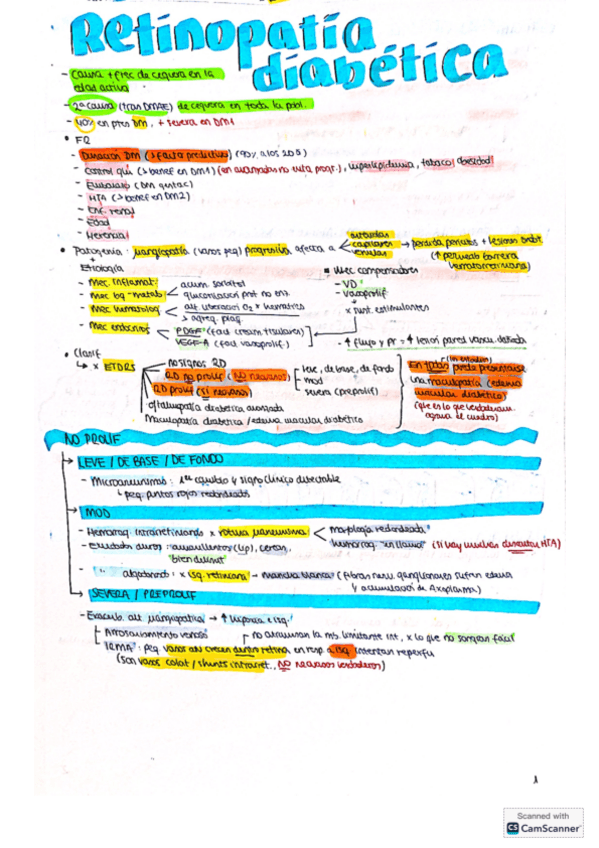 Retinopatía
diabética
- causa + frec de ceguera en la
edad activa
- 2ª causa (tras DMAE) de ceguera en toda la pobl.
- 40% en ptes DM, + severa en DM1
• FR
- Duración DM (> facto predictivo) (90% a los 20 a)
- Control glu (> benef en DM1) (en avanzadas no evita progr.), hiperlipidemia, tabaco, obesidad
- Embarazo (DM gestac)
- HTA (> benef en DM2)
- Enf. renal
- Edad
- Herencia
• Patogenia: microangiopatía (vasos peq) progresiva, afecta a
arteriolas
capilares → pérdida pericitos + lesión endot.
vénulas
(↑ permeab barrera
hematorretiniana)
+
Etiología
- Mec. inflamat:
- Mec biq-metab:
acum sorbitol
glucosilación prot no enz
- Mec hematolog
alt liberación O2 x hematíes
> agreg. plaq
- Mec endocrinos
PDGF (fact crecim tisulares)
VEGF-A (fact vasoprolif.)
■ Mec compensadores
- VD
- Vasoprolif
x sust. estimulantes
- ↑ flujo y Pr = ↑ tensión pared vascu
• Clasif
↳ x ETDRS
No signos RD
RD no prolif (NO neovasos)
leve, de base, de fondo
mod
severa (preprolif)
RD prolif (SÍ neovasos)
oftalmopatía diabética avanzada
Maculopatía diabética / edema macular diabético
En todas puede presentarse
una maculopatía (edema
macular diabético)
(que es lo que verdaderam
agrava el cuadro)
NO PROLIF
LEVE / DE BASE / DE FONDO
- Microaneurismas: 1er cambio y signo clínico detectable
↳ peq. puntos rojos redondeados
MOD
- Hemorrag. intrarretinianas x rotura maneurisma
morfología redondeada
hemorrag "en llama" (si hay muchas descartar HTA)
- Exudados duros: amarillentos (lip), cereos,
bien delimit
- " algodonosos: x isq. retiniana → mancha blanca (fibras nerv. ganglionares sufren edema
y acumulación de axoplasma)
SEVERA / PREPROLIF
- Exacerb. alt. microangiopática → ↑ hipoxia e isq.
Arrosariamiento venoso
IRMA: peq vasos que crecen dentro retina en resp a isq. intentan reperfu
no atraviesan la mb. limitante int, x lo que no sangran fácil
(son vasos colat / shunts intrarret., NO neovasos verdaderos)
1
Scanned with
CS CamScanner